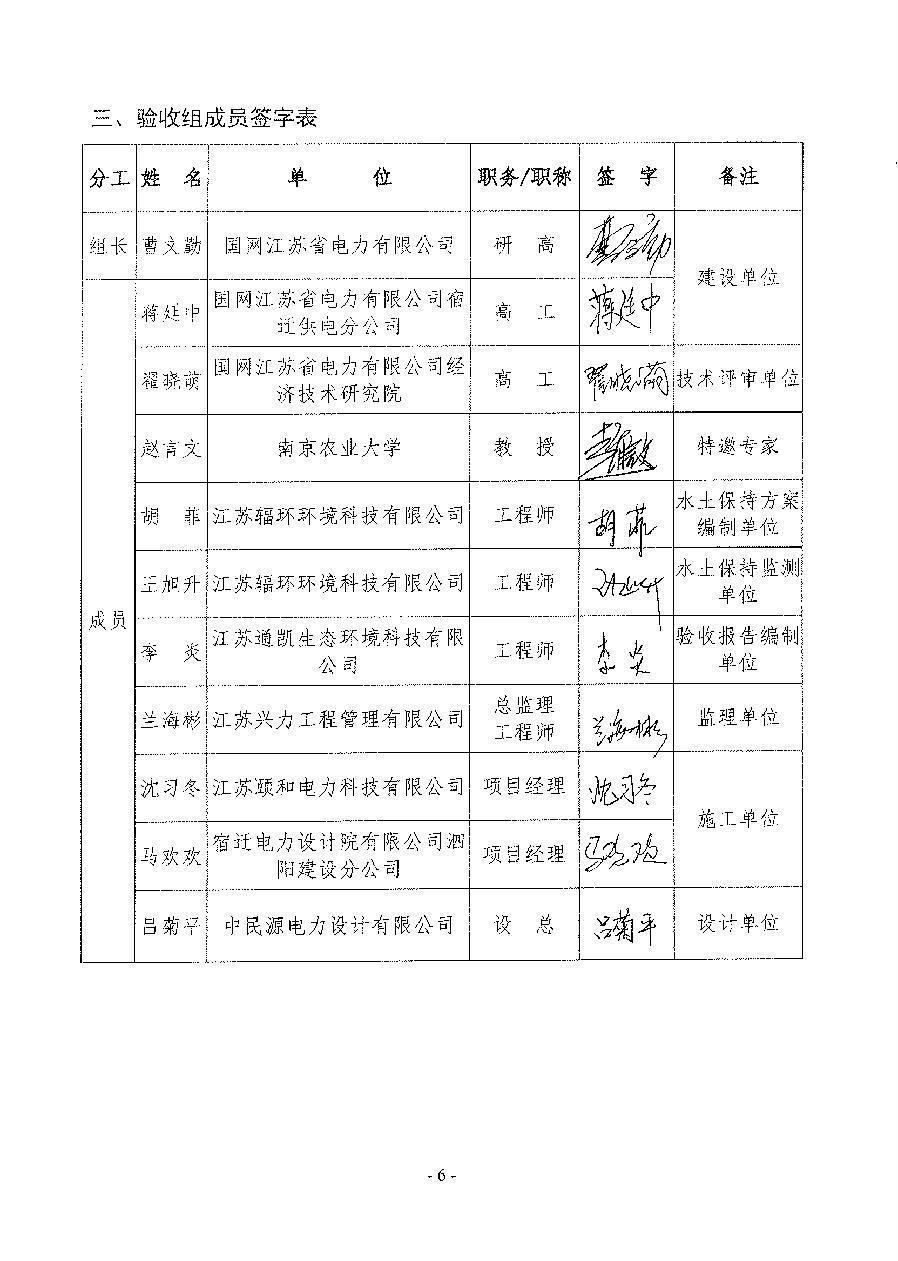 三、验收组成员签字表
分工 姓 名 单 位 职务/职称 签 字 备注
组长 曹文勤 国网江苏省电力有限公司 研 高 建设单位
成员
蒋延中 国网江苏省电力有限公司宿
迁供电分公司 高 工 蒋延中
翟晓萌 国网江苏省电力有限公司经
济技术研究院 高 工 翟晓萌 技术评审单位
赵言文 南京农业大学 教 授 特邀专家
胡 菲 江苏辐环环境科技有限公司 工程师 胡菲 水土保持方案
编制单位
王旭升 江苏辐环环境科技有限公司 工程师 水土保持监测
单位
李 炎 江苏通凯生态环境科技有限
公司 工程师 李炎 验收报告编制
单位
兰海彬 江苏兴力工程管理有限公司 总监理
工程师 兰海彬 监理单位
沈习冬 江苏颐和电力科技有限公司 项目经理 沈习冬 施工单位
马欢欢 宿迁电力设计院有限公司泗
阳建设分公司 项目经理 马欢欢
吕菊平 中民源电力设计有限公司 设 总 吕菊平 设计单位
- 6 -